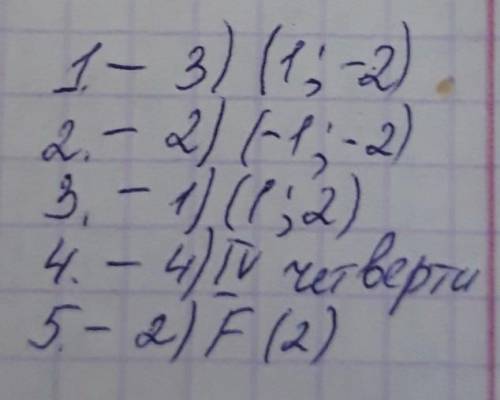 1. - 3) (1; -2)
2. - 2) (-1; -2)
3. - 1) (1; 2)
4. - 4) IV четверти
5. - 2) F (2)